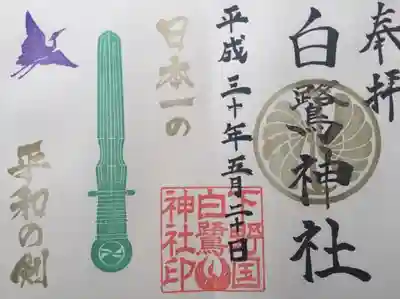 奉拝
白鷺神社
平成三十年五月二十日
日本一の
平和の剣
下野国
白鷺
神社印